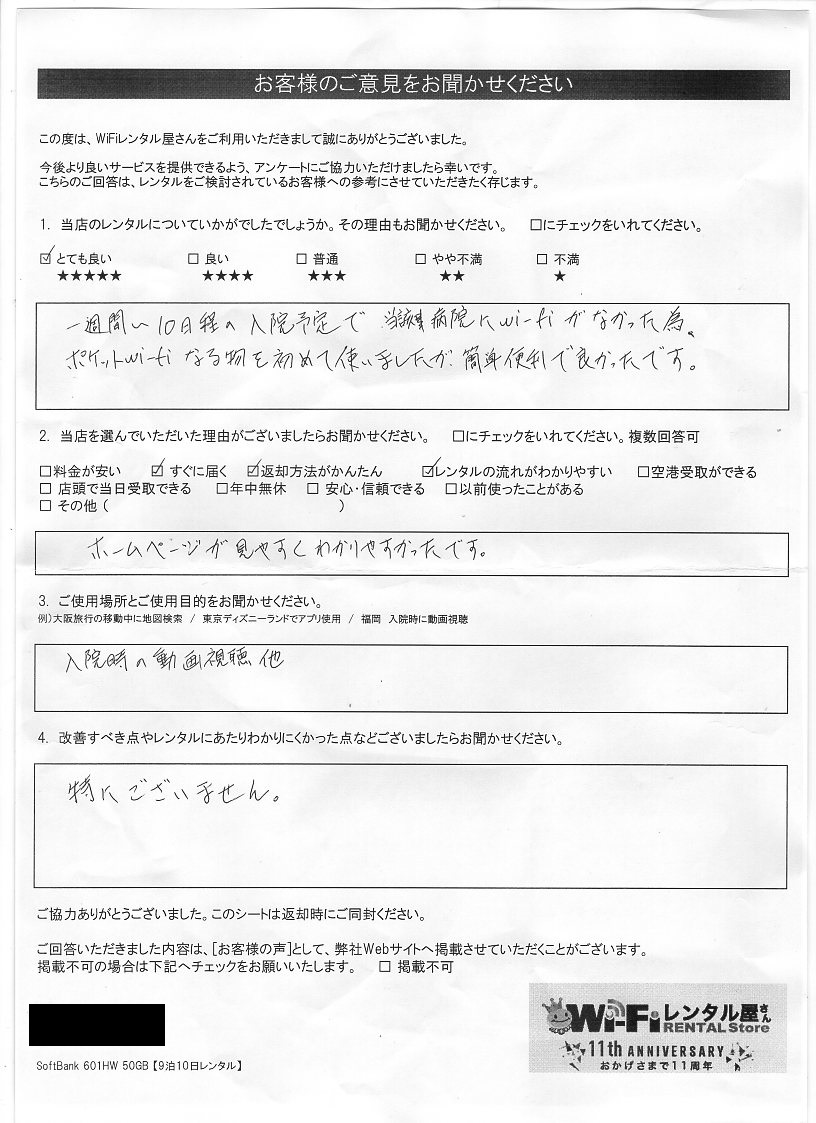 お客様のご意見をお聞かせください
この度は、WiFiレンタル屋さんをご利用いただきまして誠にありがとうございました。
今後より良いサービスを提供できるよう、アンケートにご協力いただけましたら幸いです。
こちらのご回答は、レンタルをご検討されているお客様への参考にさせていただきたく存じます。
1. 当店のレンタルについていかがでしたでしょうか。その理由もお聞かせください。 □にチェックをいれてください。
☑とても良い □ 良い □ 普通 □ やや不満 □ 不満
★★★★★ ★★★★ ★★★ ★★ ★
一週間〜10日程の入院予定で 当該 病院にwi-fiがなかった為、
ポケットwi-fiなる物を初めて使いましたが、簡単便利で良かったです。
2. 当店を選んでいただいた理由がございましたらお聞かせください。 □にチェックをいれてください。複数回答可
□料金が安い ☑ すぐに届く ☑返却方法がかんたん ☑レンタルの流れがわかりやすい □空港受取ができる
□ 店頭で当日受取できる □年中無休 □ 安心・信頼できる □以前使ったことがある
□ その他 ( )
ホームページが見やすくわかりやすかったです。
3. ご使用場所とご使用目的をお聞かせください。
例)大阪旅行の移動中に地図検索 / 東京ディズニーランドでアプリ使用 / 福岡 入院時に動画視聴
入院時の動画視聴他
4. 改善すべき点やレンタルにあたりわかりにくかった点などございましたらお聞かせください。
特にございません。
ご協力ありがとうございました。このシートは返却時にご同封ください。
ご回答いただきました内容は、[お客様の声]として、弊社Webサイトへ掲載させていただくことがございます。
掲載不可の場合は下記へチェックをお願いいたします。 □ 掲載不可
Wi-Fiレンタル屋さん
RENTAL Store
11th ANNIVERSARY
おかげさまで11周年
SoftBank 601HW 50GB【9泊10日レンタル】